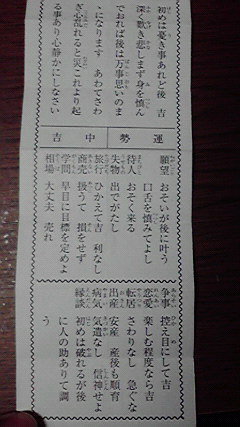 初めは憂き事あれど後　吉
深く歎き悲しまず身を慎ん
でおれば後は万事思いのま
ゝになります　あわてさわ
ぎ心乱れると災これより起
る事あり心静かにしなさい
運勢
中吉
願望　おそいが後に叶う
口舌を慎みてよし
待人　おそく来る
失物　出でがたし
旅行　ひかえて吉　利なし
商売　扱うて　損をせず
学問　早目に目標を定めよ
相場　大丈夫　売れ
争事　控え目にして吉
恋愛　楽しむ程度なら吉
転居　さわりなし　急ぐな
出産　安産　産後も順育
病気　気遣なし　信神せよ
縁談　初めは破れるが後
に人の助ありて調
う